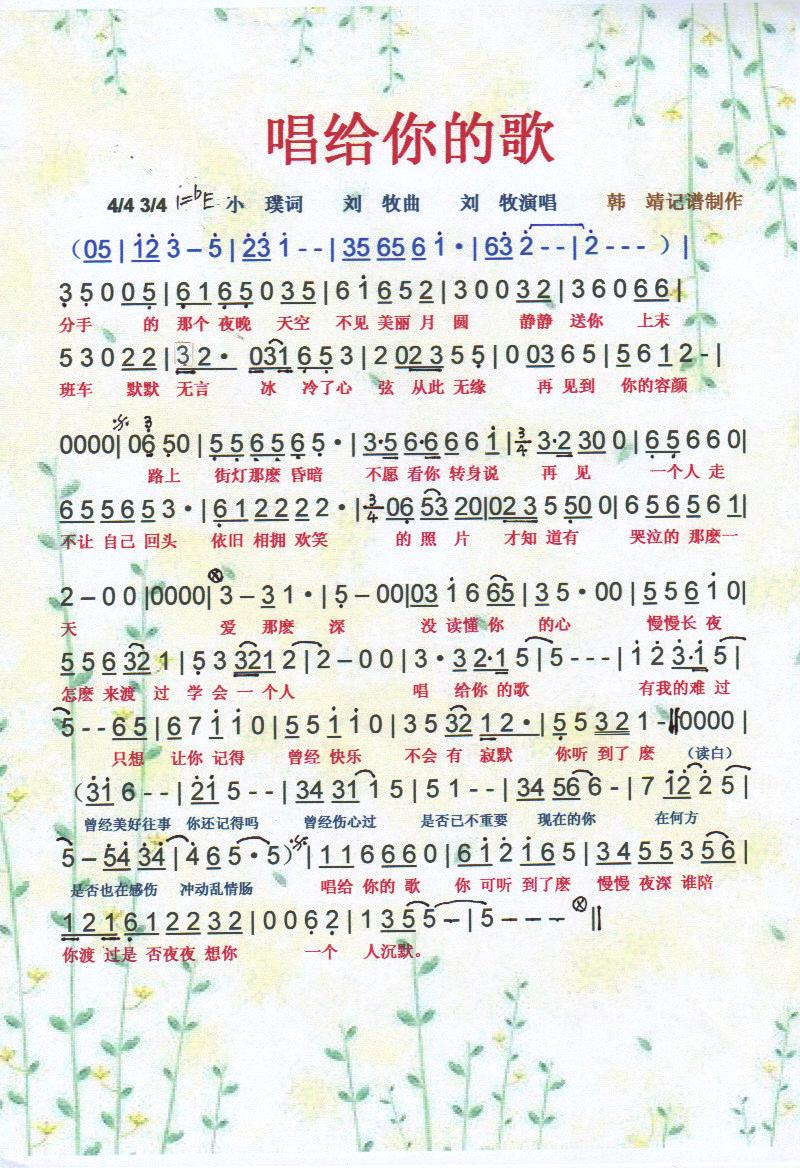 唱给你的歌
4/4 3/4 1=bE 小 璞词 刘 牧曲 刘 牧演唱 韩 靖记谱制作
（05 | 12 3 – 5 | 23 1 - - | 35 65 6 1 · | 63 2 - - | 2 - - - ）|
3 5 0 0 5 | 6 1 6 5 0 3 5 | 6 1 6 5 2 | 3 0 0 3 2 | 3 6 0 6 6 |
分手 的 那个 夜晚 天空 不见 美丽 月 圆 静静 送你 上末
5 3 0 2 2 | 3 2 · 031 6 5 3 | 2 02 3 5 5 | 0 03 6 5 | 5 6 1 2 - |
班车 默默 无言 冰 冷了心 弦 从此 无缘 再 见到 你的容颜
0000 | 06 50 | 5 5 6 5 6 5 · | 3·5 6·6 6 6 1 | 3/4 3·2 30 0 | 6 5 6 6 0 |
路上 街灯那麽 昏暗 不愿 看你 转身说 再 见 一个人 走
6 5 5 6 5 3 · | 6 1 2 2 2 2 · | 3/4 06 53 20 | 02 3 5 50 0 | 6 5 6 5 6 1 |
不让 自己 回头 依旧 相拥 欢笑 的 照 片 才知 道有 哭泣的 那麽一
2 – 0 0 | 0000 | 3 – 3 1 · | 5 – 00 | 03 1 6 65 | 3 5 · 00 | 5 5 6 1 0 |
天 爱 那麽 深 没 读懂 你 的心 慢慢长 夜
5 5 6 32 1 | 5 3 321 2 | 2 – 0 0 | 3 · 3 2·1 5 | 5 - - - | 1 2 3·1 5 |
怎麽 来渡 过 学 会 一 个人 唱 给你 的歌 有我的难 过
5 - - 6 5 | 6 7 1 1 0 | 5 5 1 1 0 | 3 5 32 1 2 · | 5 5 3 2 1 - 0000 |
只想 让你 记得 曾经 快乐 不会 有 寂默 你听 到了 麽 （读白）
（31 6 - - | 21 5 - - | 34 31 1 5 | 5 1 - - | 34 56 6 - | 7 12 2 5 |
曾经美好往事 你还记得吗 曾经伤心过 是否已不重要 现在的你 在何方
5 – 54 34 | 4 6 5 · 5）| 1 1 6 6 6 0 | 6 1 2 1 6 5 | 3 4 5 5 3 5 6 |
是否也在感伤 冲动乱情肠 唱给 你的 歌 你 可听 到了麽 慢慢 夜深 谁陪
1 2 1 6 1 2 2 3 2 | 0 0 6 2 | 1 3 5 5 – | 5 – – – ‖
你渡 过是 否夜夜 想你 一个 人沉默。